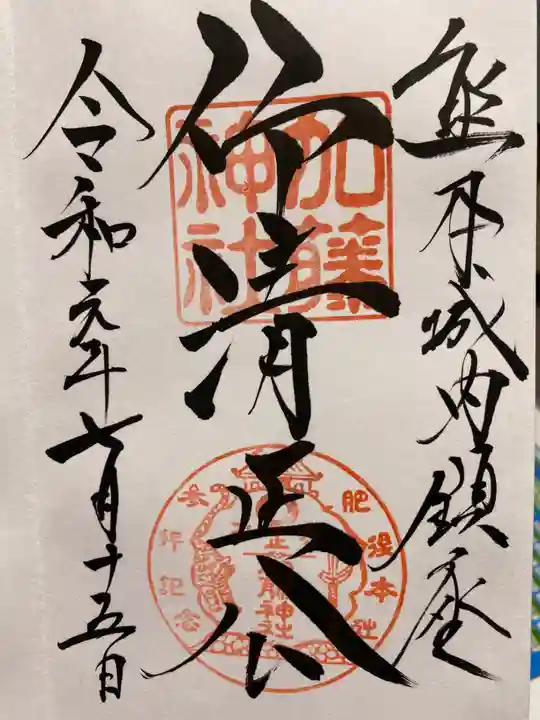 熊本城内鎮座
加藤神社
清正公
肥後本社
加藤神社
参拝記念
令和元年七月十五日